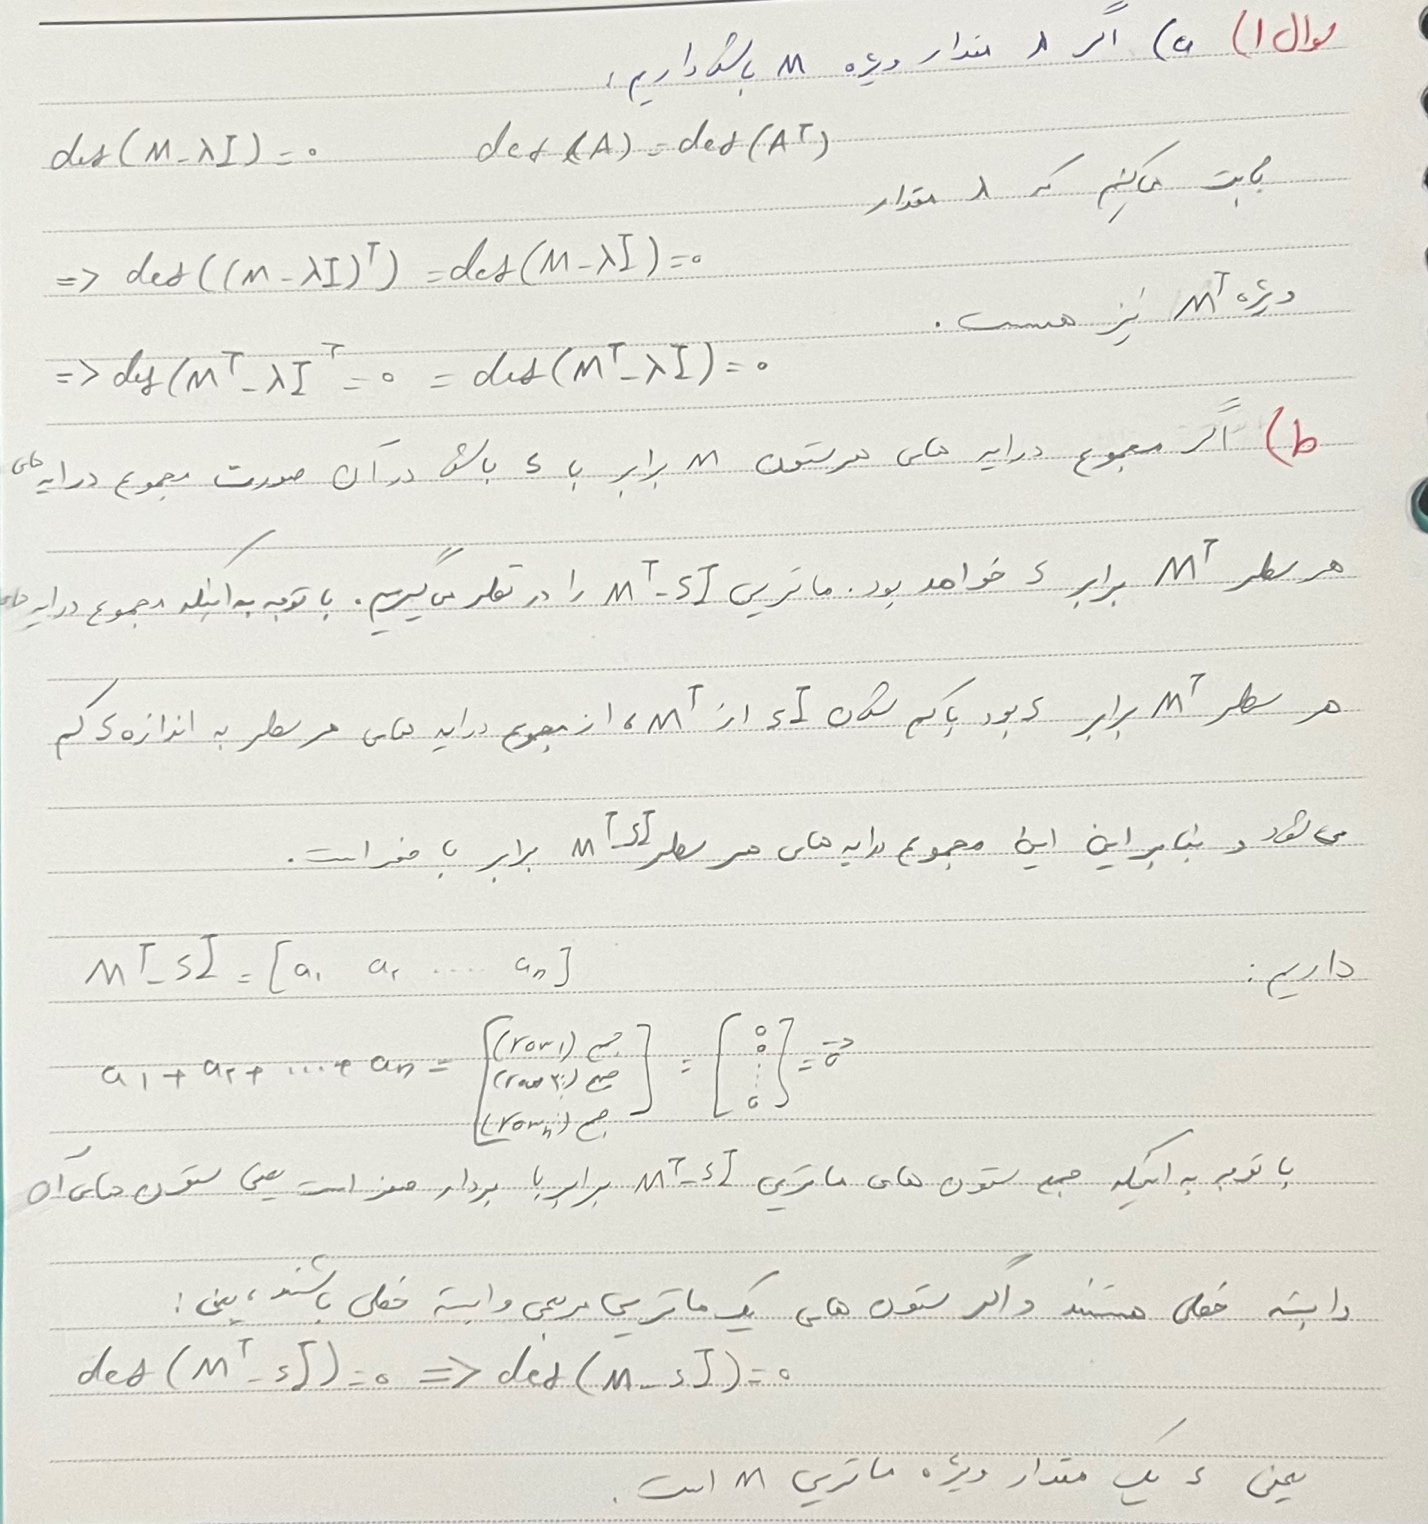 سوال ۱) a) اگر λ مقدار ویژه M باشد داریم:
det(M-λI)=0 det(A)=det(Aᵀ)
ثابت می‌کنیم که λ مقدار
=> det((M-λI)ᵀ)=det(M-λI)=0
ویژه Mᵀ نیز هست.
=> det(Mᵀ-λIᵀ=0 = det(Mᵀ-λI)=0
b) اگر مجموع درایه های هر ستون M برابر با s باشد در آن صورت مجموع درایه های
هر سطر Mᵀ برابر s خواهد بود. ماتریس Mᵀ-sI را در نظر می‌گیریم. با توجه به اینکه مجموع درایه های
هر سطر Mᵀ برابر s بود با کم شدن sI از Mᵀ، از مجموع درایه های هر سطر به اندازه s کم
می شود و بنابراین این مجموع درایه های هر سطر Mᵀ-sI برابر با صفر است.
داریم: Mᵀ-sI=[a₁ a₂ .... aₙ]
a₁+a₂+...+aₙ = [جمع (row₁) جمع (row₂) جمع (rowₙ)] = [0 0 ⋮ 0] = 0⃗
با توجه به اینکه جمع ستون های ماتریس Mᵀ-sI برابر با بردار صفر است یعنی ستون های آن
وابسته خطی هستند و اگر ستون های یک ماتریس مربعی وابسته خطی باشند، یعنی:
det(Mᵀ-sI)=0 => det(M-sI)=0
یعنی s یک مقدار ویژه ماتریس M است.